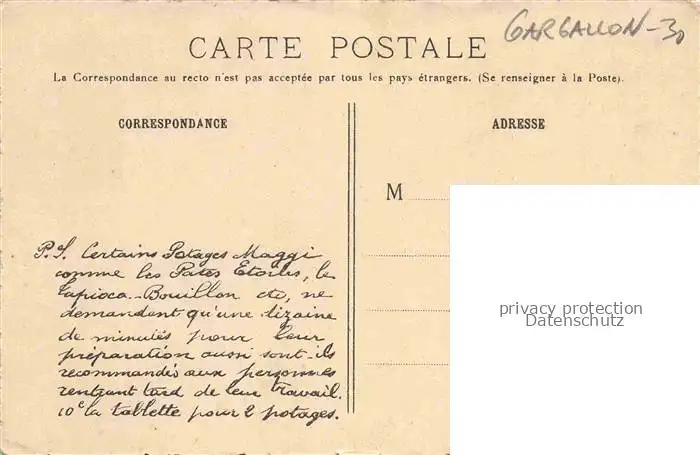 GARGALLON - 30
CARTE POSTALE
La Correspondance au recto n'est pas acceptée par tous les pays étrangers. (Se renseigner à la Poste).
CORRESPONDANCE
ADRESSE
M
P.S. Certains Potages Maggi
comme les Pates Etoiles, le
Tapioca-Bouillon etc, ne
demandent qu'une dizaine
de minutes pour leur
préparation aussi sont-ils
recommandés aux personnes
rentrant tard de leur travail.
10c la tablette pour 2 potages.
privacy protection
Datenschutz